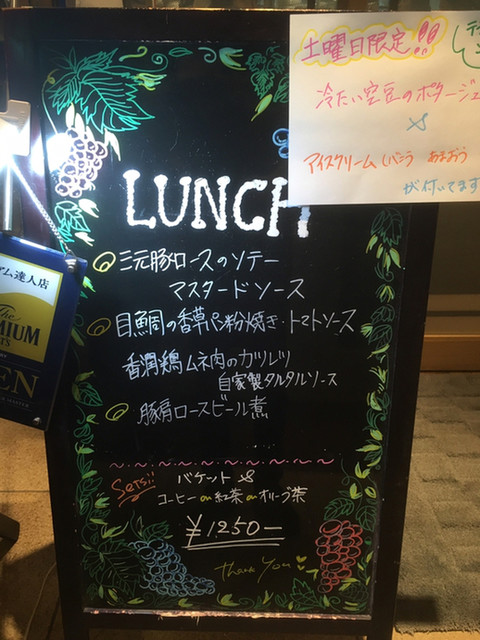 土曜日限定!!
冷たい空豆のポタージュ
&
アイスクリーム(バニラ あまおう
が付いてます
LUNCH
三元豚ロースのソテー
マスタードソース
目鯛の香草パン粉焼き・トマトソース
香潤鶏ムネ肉のカツレツ
自家製タルタルソース
豚肩ロースビール煮
バケット &
コーヒー or 紅茶 or オリーブ茶
¥1,250-
Thank You
ム達人店
The
MIUM